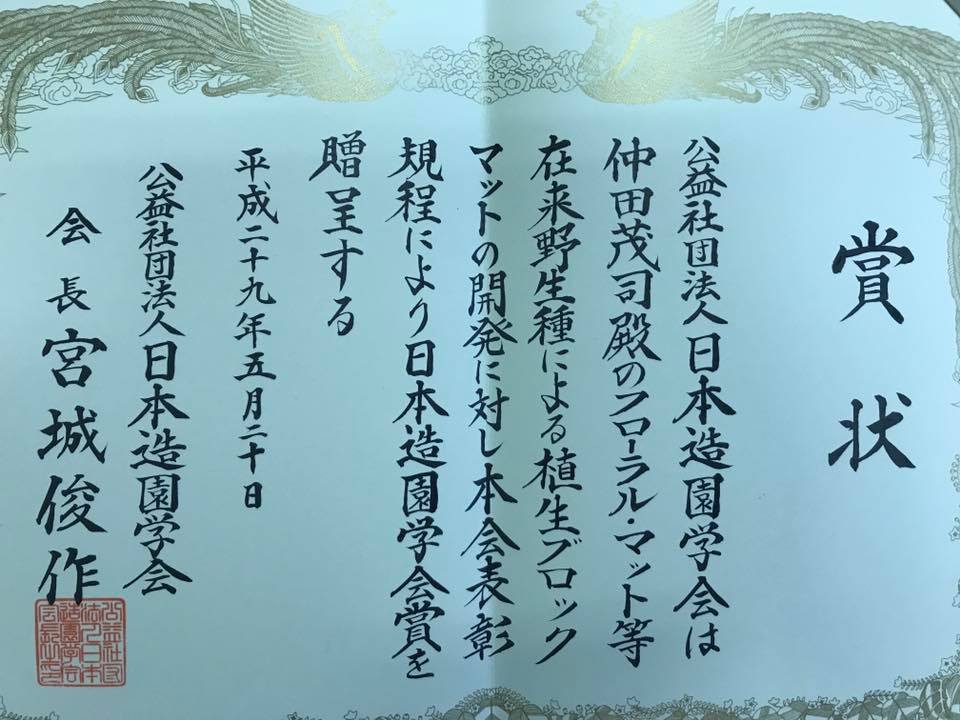 賞状
公益社団法人日本造園学会は
仲田茂司殿のフローラル・マット等
在来野生種による植生ブロック
マットの開発に対し本会表彰
規程により日本造園学会賞を
贈呈する
平成二十九年五月二十日
公益社団法人日本造園学会
会長宮城俊作